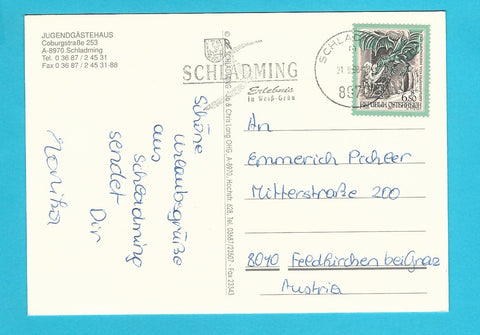 JUGENDGÄSTEHAUS
Coburgstraße 253
A-8970 Schladming
Tel. 0 36 87 / 2 45 31
Fax 0 36 87 / 2 45 31-88
SCHLADMING
Erlebnis
in Weiß-Grün
SCHLADMING
8970
6.50
REPUBLIK ÖSTERREICH
Schöne
Urlaubsgrüße
aus
Schladming
sendet Dir
Monika
Chris Lang OHG, A-8970, Hochstr. 628, Tel. 03687/23607 - Fax 23343
An
Emmerich Pichler
Mitterstraße 200
8010 Feldkirchen bei Graz
Austria